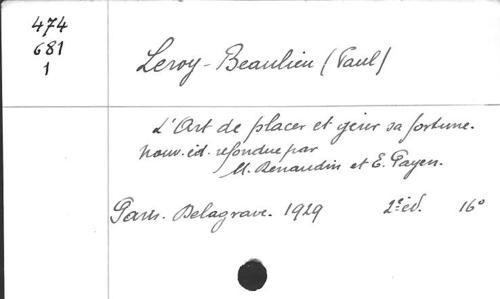 474
681
1
Leroy-Beaulieu (Paul)
L'Art de placer et gérer sa fortune.
Nouv. éd. refondue par
M. Renaudin et E. Payen.
Paris. Delagrave. 1929 2e éd. 16°